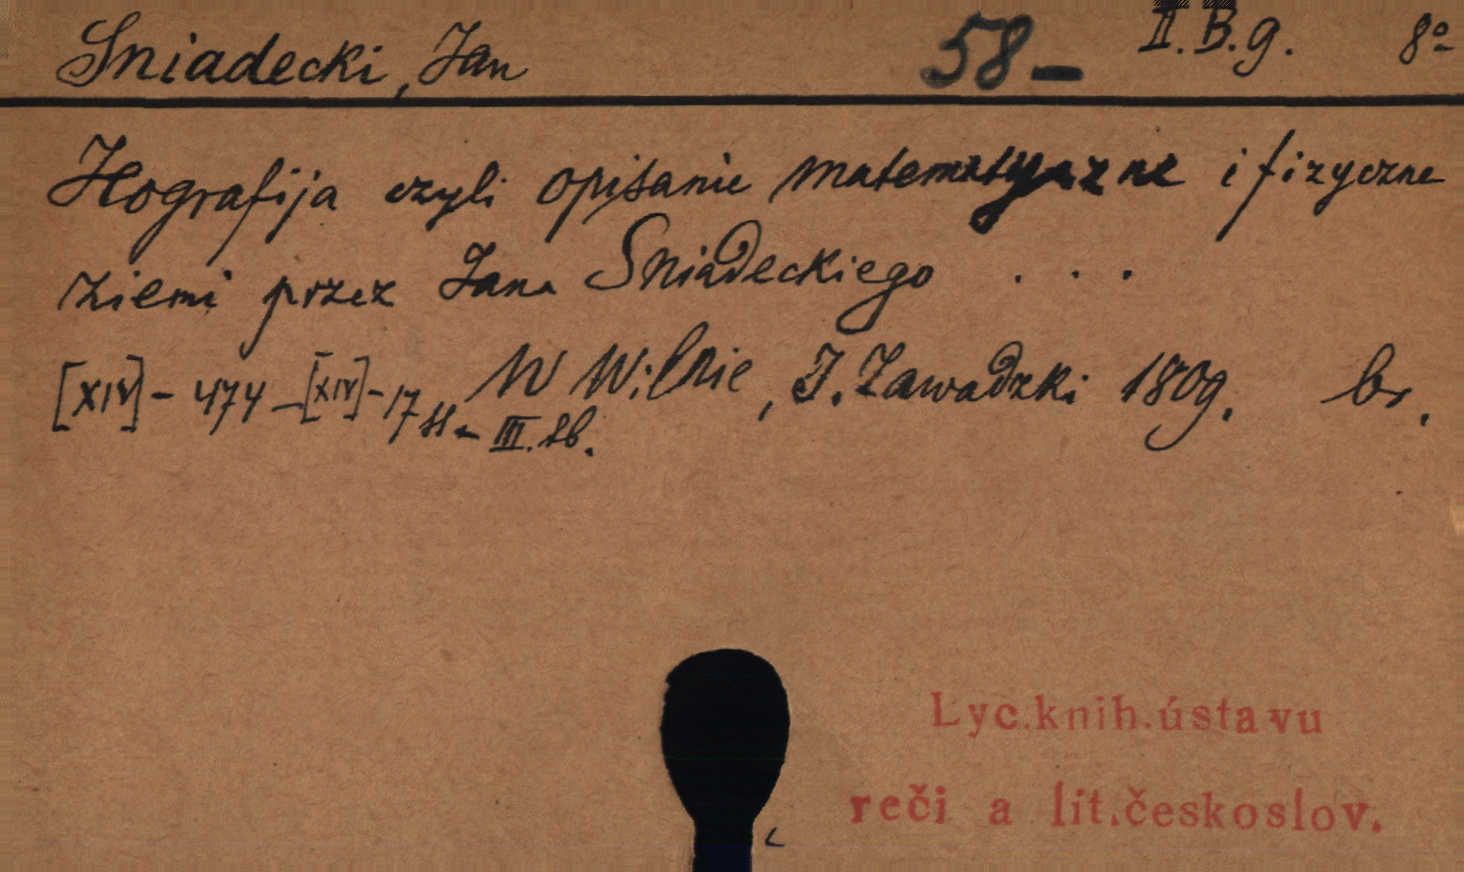 Sniadecki, Jan 58- II.B.g. 8º
Jeografija czyli opisanie matematyczne i fizyczne
ziemi przez Jana Sniadeckiego . . .
[XIV] - 474 - [XIV] - 17 W Wilnie, J. Zawadzki 1809. br.
III.
Lyc.knih.ústavu
reči a lit.českoslov.